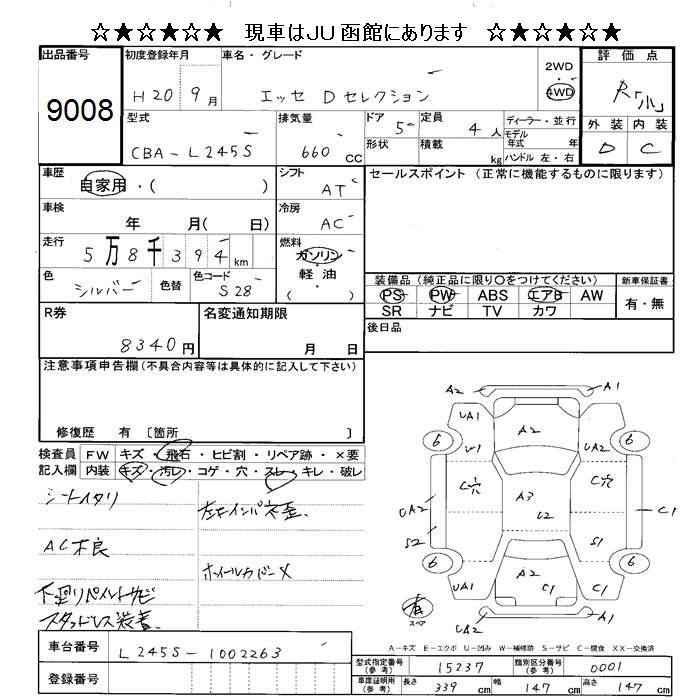 ☆★☆★☆★ 現車はJU函館にあります ☆★☆★☆★
出品番号 9008
初度登録年月 H20 9月
車名・グレード エッセ Dセレクション
2WD 4WD
評価点 R「小」
型式 CBA-L245S
排気量 660 CC
ドア 5
定員 4人
形状
積載 kg
ディーラー・並行
モデル年式 年
ハンドル 左・右
外装 D
内装 C
車歴 自家用・( )
シフト AT
セールスポイント (正常に機能するものに限ります)
車検 年 月( 日)
冷房 AC
走行 5万8千394km
燃料 ガソリン・軽油 ( )
色 シルバー
色替
色コード S28
装備品 (純正品に限り〇をつけてください)
新車保証書
PS PW ABS エアB AW
SR ナビ TV カワ
有・無
R券 8340円
名変通知期限 月 日
後日品
注意事項申告欄(不具合内容等は具体的に記入して下さい)
修復歴 有 〔箇所 〕
検査員 FW キズ・飛石・ヒビ割・リペア跡・×要
記入欄 内装 キズ・汚レ・コゲ・穴・スレ・キレ・破レ
シートイタリ
左右インパネ歪
AC不良
ホイールカバー×
下廻りペイントサビ
スタッドレス装着
A2 A1
UA1 A2 UA2
6 6
U1
C穴 C穴
A3 U2
UA2 C1
S2 S1
6 6
UA1 A2 C1 C1
有 スペア
UA2 A1
A-キズ E-エクボ U-凹み W-補修跡 S-サビ C-腐食 XX-交換済
車台番号 L245S-1002263
登録番号
型式指定番号(参考) 15237
類別区分番号(参考) 0001
車庫証明用(参考) 長さ 339cm 幅 147cm 高さ 147cm